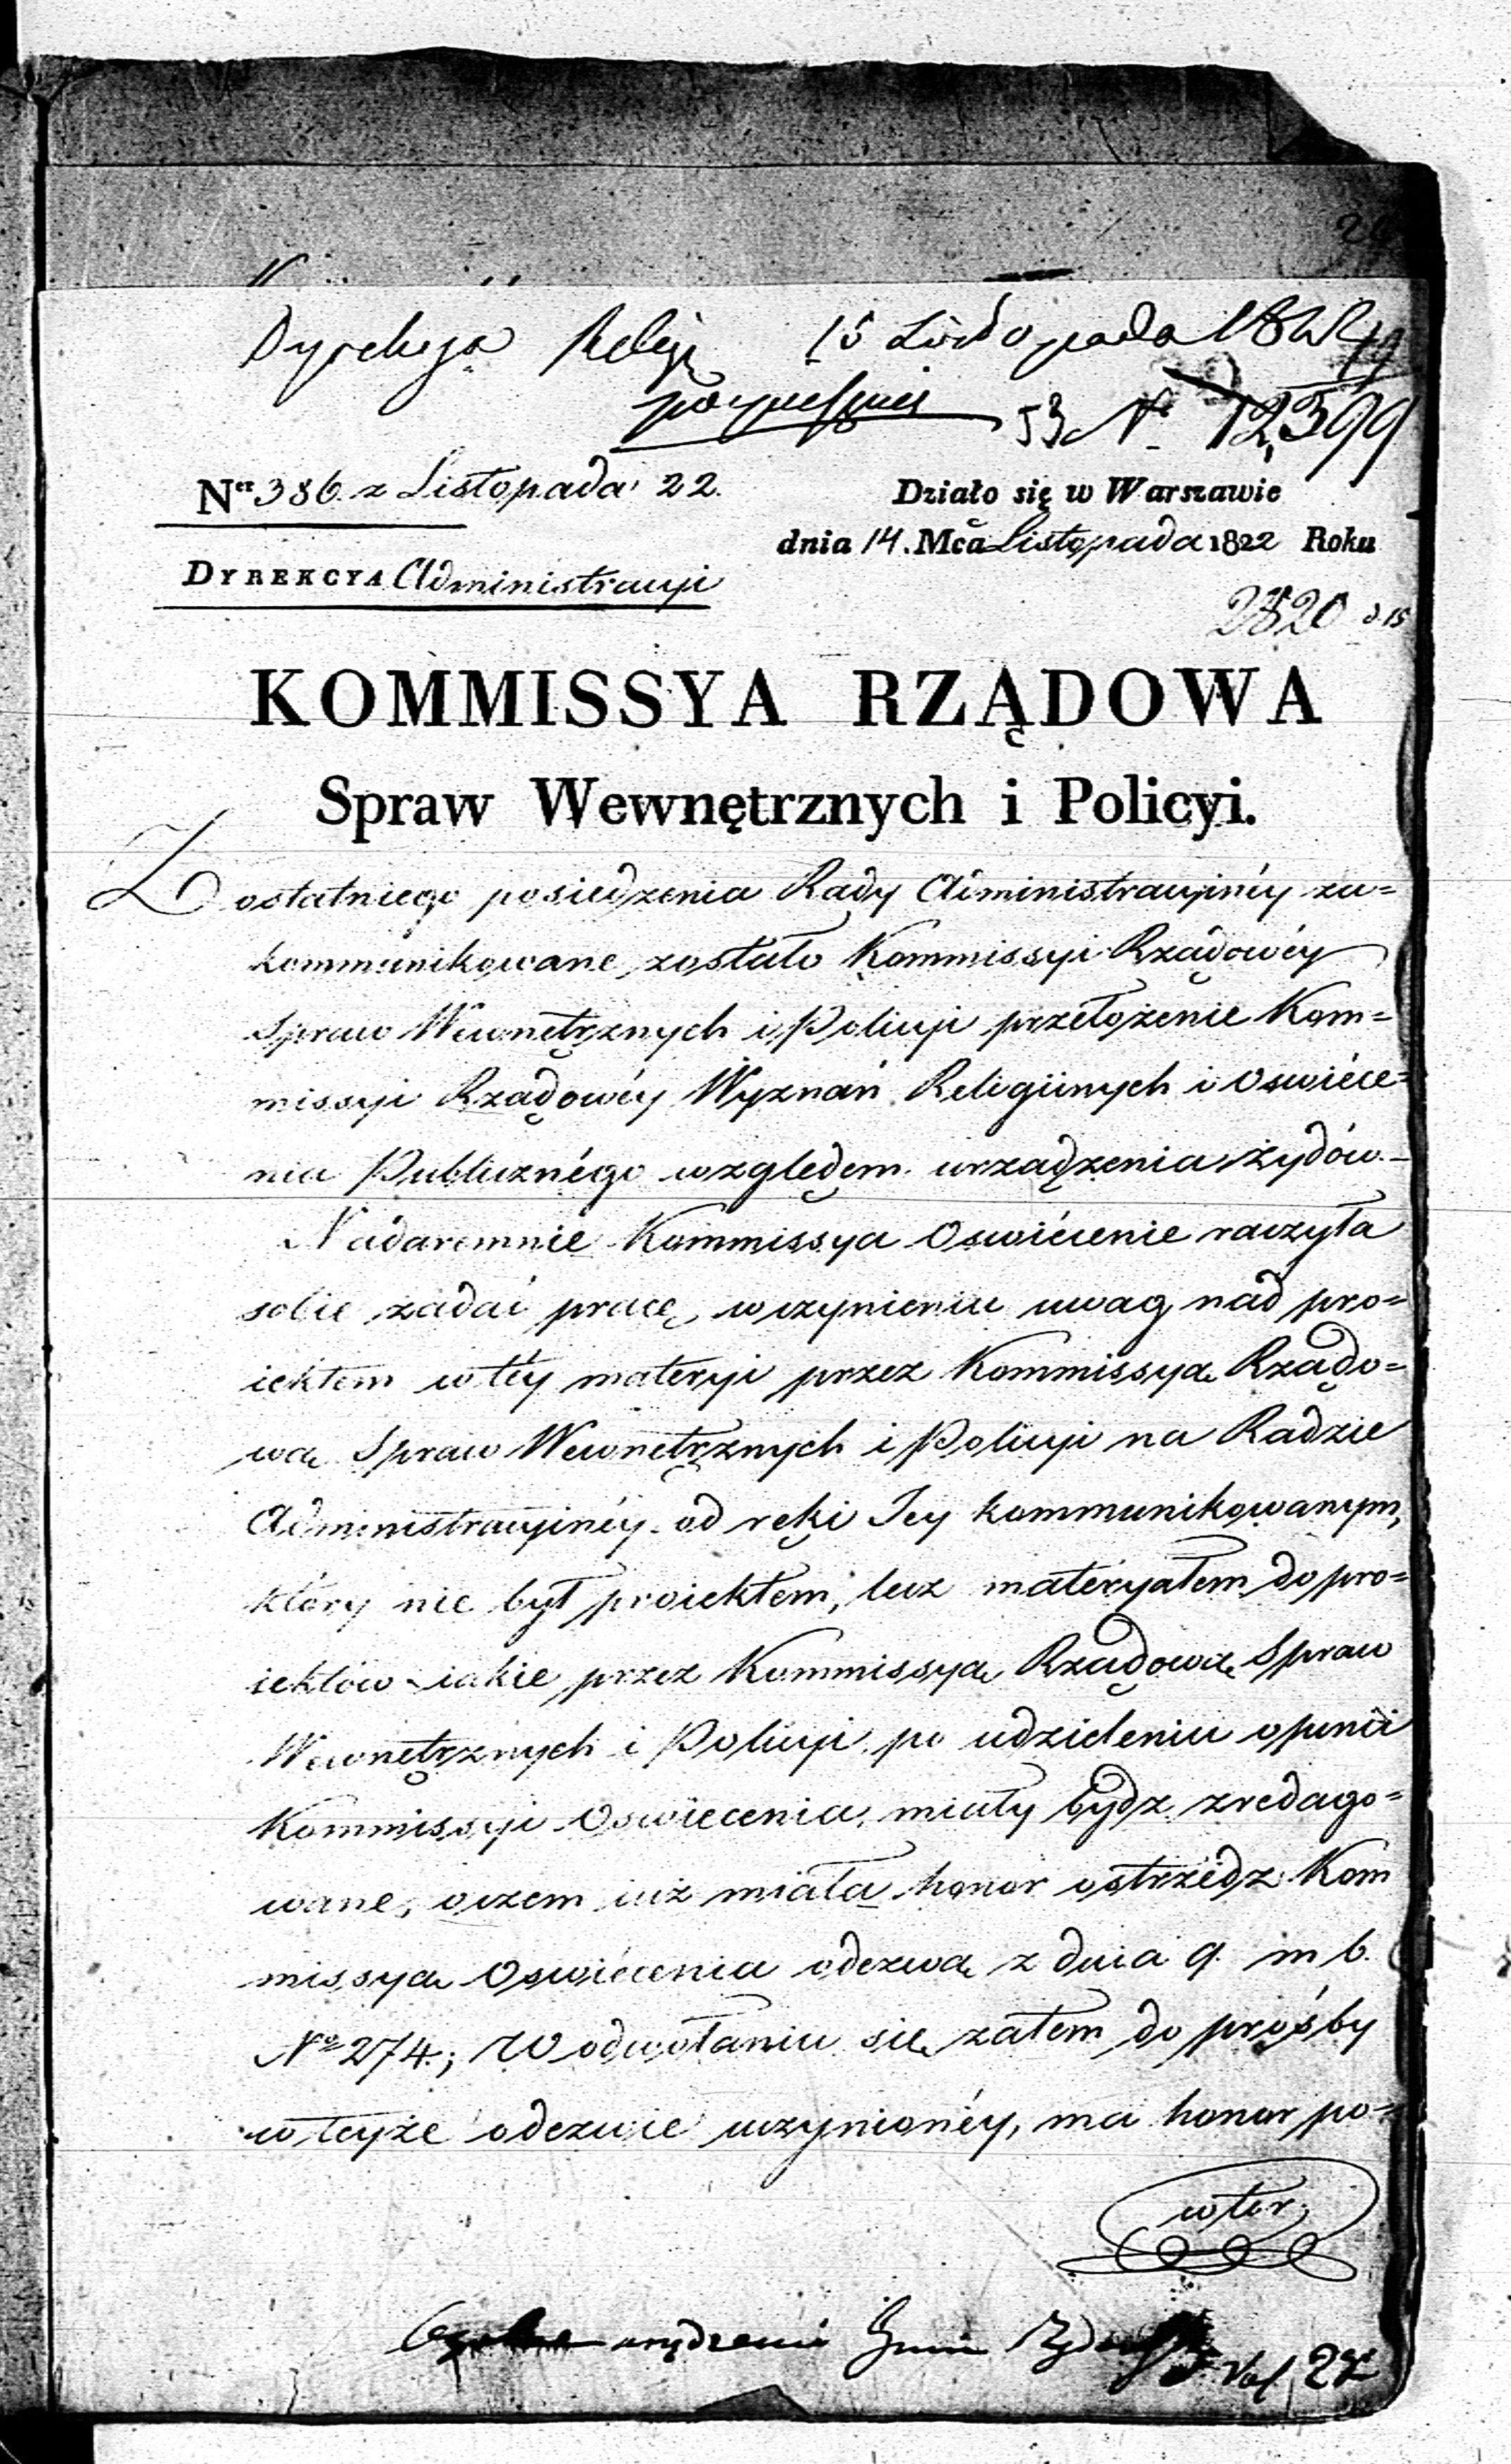 Dyrekcya Religij 15 Listopada 1822
53 Nº 12,399
Ner 386. z Listopada 22.
Działo się w Warszawie
dnia 14. Mca Listopada 1822 Roku
DYREKCYA Administracyi
2820
KOMMISSYA RZĄDOWA
Spraw Wewnętrznych i Policyi.
Z ostatniego posiedzenia Rady Administracyinéy za=
kommunikowane zostało Kommissyi Rządowéy
Spraw Wewnętrznych i Policyi przełożenie Kom=
missyi Rządowéy Wyznań Religiinych i Oswiéce=
nia Publicznégo względem urządzenia żydów.
Nadaremnie Kommissya Oswiécenie raczyła
sobie zadać pracę, w czynieniu uwag nad pro=
iektem w téy materyi przez Kommissyą Rządo=
wą Spraw Wewnętrznych i Policyi na Radzie
Administracyinéy od ręki Jey kommunikowanym,
który nie był proiektem, lecz materyałem do pro=
iektów iakie przez Kommissyą Rządową Spraw
Wewnętrznych i Policyi po udzieleniu opinii
Kommissyi Oswiecenia, miały bydz zredago=
wane, o czem iuż miała honor ostrzedz Kom
missyą Oswiécenia odezwą z dnia 9. m b.
Nº 274.; W odwołaniu się zatem do prośby
w teyże odezwie uczynionéy, ma honor po=
wtor.
urządzenie Gmin
Vol. 2